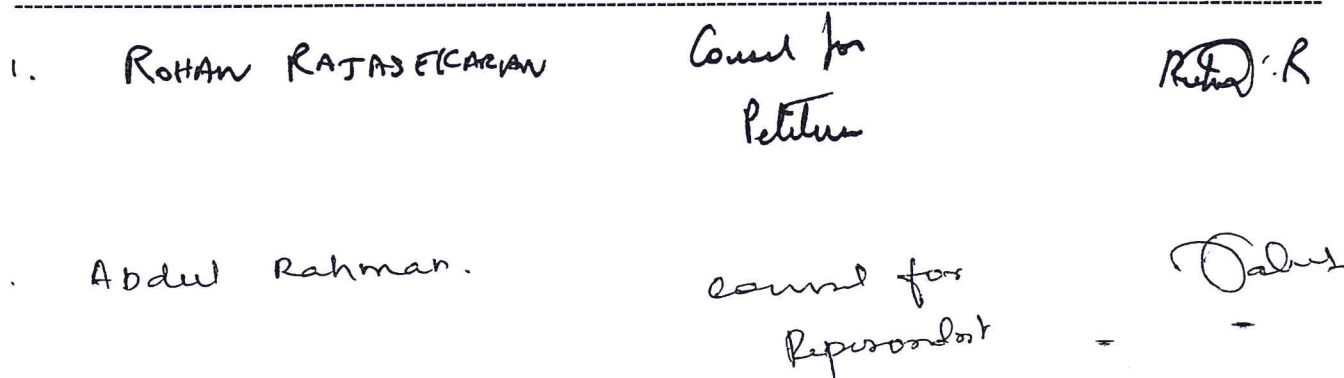 1. ROHAN RAJASEKARAN Counsel for
Petitioner
. Abdul Rahman. counsel for
Respondent - -